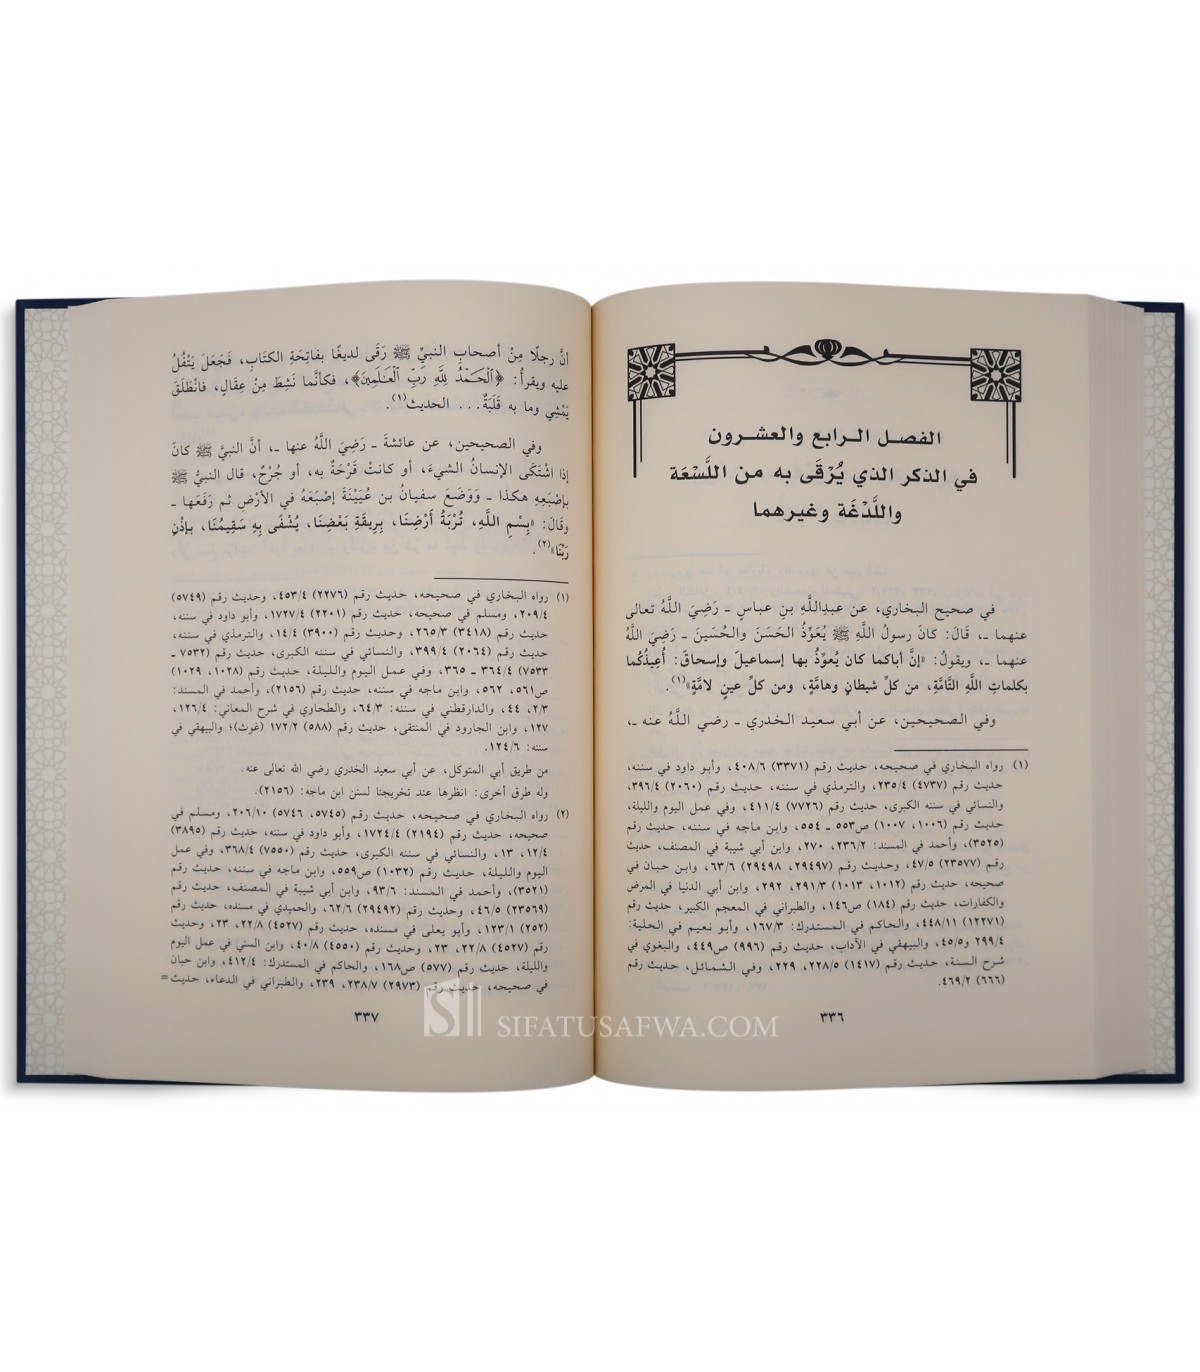 الفصل الرابع والعشرون
في الذكر الذي يُرْقَى به من اللَّسْعَة
واللَّدْغَة وغيرهما
في صحيح البخاري، عن عبدِاللَّهِ بنِ عباسٍ ـ رَضِيَ اللَّهُ تعالى
عنهما ـ، قَالَ: كانَ رسولُ اللَّهِ ﷺ يُعَوِّذُ الحَسَنَ والحُسَيْنَ ـ رَضِيَ اللَّهُ
عنهما ـ، ويقولُ: «إنَّ أباكما كان يُعوِّذُ بها إسماعيلَ وإسحاقَ: أُعِيذُكُما
بكلماتِ اللَّهِ التَّامَّةِ، من كلِّ شيطانٍ وهامَّةٍ، ومن كلِّ عينٍ لامَّةٍ»(١).
وفي الصحيحين، عن أبي سعيد الخدري ـ رضي اللَّهُ عنه ـ،
(١) رواه البخاري في صحيحه، حديث رقم (٣٣٧١) ٤٠٨/٦، وأبو داود في سننه،
حديث رقم (٤٧٣٧) ٢٣٥/٤، والترمذي في سننه، حديث رقم (٢٠٦٠) ٣٩٦/٤،
والنسائي في سننه الكبرى، حديث رقم (٧٧٢٦) ٤١١/٤، وفي عمل اليوم والليلة،
حديث رقم (١٠٠٦، ١٠٠٧) ص٥٥٣ ـ ٥٥٤، وابن ماجه في سننه، حديث رقم
(٣٥٢٥)، وأحمد في المسند: ٢٣٦/٢، ٢٧٠، وابن أبي شيبة في المصنف، حديث
رقم (٢٣٥٧٧) ٤٧/٥، وحديث رقم (٢٩٤٩٧، ٢٩٤٩٨) ٦٣/٦، وابن حبان في
صحيحه، حديث رقم (١٠١٢، ١٠١٣) ٢٩١/٣، ٢٩٢، وابن أبي الدنيا في المرض
والكفارات، حديث رقم (١٨٤) ص١٤٦، والطبراني في المعجم الكبير، حديث رقم
(١٢٢٧١) ٤٤٨/١١، والحاكم في المستدرك: ١٦٧/٣، وأبو نعيم في الحلية:
٢٩٩/٤ و٤٥/٥، والبيهقي في الآداب، حديث رقم (٩٩٦) ص٤٤٩، والبغوي في
شرح السنة، حديث رقم (١٤١٧) ٢٢٨/٥، ٢٢٩، وفي الشمائل، حديث رقم
(٦٦٦) ٤٦٩/٢.
٣٣٦
أنَّ رجلًا مِنْ أصحابِ النبيِّ ﷺ رَقَى لديغًا بفاتِحَةِ الكتَابِ، فَجَعَلَ يَتْفُلُ
عليه ويقرأُ: ﴿ٱلْحَمْدُ لِلَّهِ رَبِّ ٱلْعَـٰلَمِينَ﴾، فكأنَّما نَشِطَ مِنْ عِقَالٍ، فانْطَلَقَ
يَمْشِي وما به قَلَبَةٌ... الحديث(١).
وفي الصحيحين، عن عائشةَ ـ رَضِيَ اللَّهُ عنها ـ، أنَّ النبيَّ ﷺ كانَ
إذا اشْتَكَى الإنسانُ الشيءَ، أو كانتْ قَرْحَةٌ به، أو جُرْحٌ، قال النبيُّ ﷺ
بإصْبَعِهِ هكذا ـ وَوَضَعَ سفيانُ بن عُيَيْنَةَ إصْبَعَهُ في الأرْضِ ثم رَفَعَها ـ
وقَالَ: «بِسْمِ اللَّهِ، تُرْبَةُ أَرْضِنَا، بِرِيقَةِ بَعْضِنَا، يُشْفَى بِهِ سَقِيمُنَا، بِإذْنِ
رَبِّنَا»(٢).
(١) رواه البخاري في صحيحه، حديث رقم (٢٢٧٦) ٤٥٣/٤، وحديث رقم (٥٧٤٩)
٢٠٩/٤، ومسلم في صحيحه، حديث رقم (٢٢٠١) ١٧٢٧/٤، وأبو داود في سننه،
حديث رقم (٣٤١٨) ٢٦٥/٣، وحديث رقم (٣٩٠٠) ١٤/٤، والترمذي في سننه،
حديث رقم (٢٠٦٤) ٣٩٩/٤، والنسائي في سننه الكبرى، حديث رقم (٧٥٣٢ ـ
٧٥٣٣) ٣٦٤/٤ ـ ٣٦٥، وفي عمل اليوم والليلة، حديث رقم (١٠٢٨، ١٠٢٩)
ص٥٦١، ٥٦٢، وابن ماجه في سننه، حديث رقم (٢١٥٦)، وأحمد في المسند:
٢/٣، ٤٤، والدارقطني في سننه: ٦٤/٣، والطحاوي في شرح المعاني: ١٢٦/٤،
١٢٧، وابن الجارود في المنتقى، حديث رقم (٥٨٨) ١٧٢/٢ (غوث)؛ والبيهقي في
سننه: ١٢٤/٦.
من طريق أبي المتوكل، عن أبي سعيد الخدري رضي الله تعالى عنه.
وله طرق أخرى: انظرها عند تخريجنا لسنن ابن ماجه: (٢١٥٦).
(٢) رواه البخاري في صحيحه، حديث رقم (٥٧٤٥، ٥٧٤٦) ٢٠٦/١٠، ومسلم في
صحيحه، حديث رقم (٢١٩٤) ١٧٢٤/٤، وأبو داود في سننه، حديث رقم (٣٨٩٥)
١٢/٤، ١٣، والنسائي في سننه الكبرى، حديث رقم (٧٥٥٠) ٣٦٨/٤، وفي عمل
اليوم والليلة، حديث رقم (١٠٣٢) ص٥٥٩، وابن ماجه في سننه، حديث رقم
(٣٥٢١)، وأحمد في المسند: ٩٣/٦، وابن أبي شيبة في المصنف، حديث رقم
(٢٣٥٦٩) ٤٦/٥، وحديث رقم (٢٩٤٩٢) ٦٢/٦، والحميدي في مسنده، حديث رقم
(٢٥٢) ١٢٣/١، وأبو يعلى في مسنده، حديث رقم (٤٥٢٧) ٢٢/٨، ٢٣، وحديث
رقم (٤٥٢٧) ٢٢/٨، ٢٣، وحديث رقم (٤٥٥٠) ٤٠/٨، وابن السني في عمل اليوم
والليلة، حديث رقم (٥٧٧) ص١٦٨، والحاكم في المستدرك: ٤١٢/٤، وابن حبان
في صحيحه، حديث رقم (٢٩٧٣) ٢٣٨/٧، ٢٣٩، والطبراني في الدعاء، حديث =
٣٣٧
SIFATUSAFWA.COM